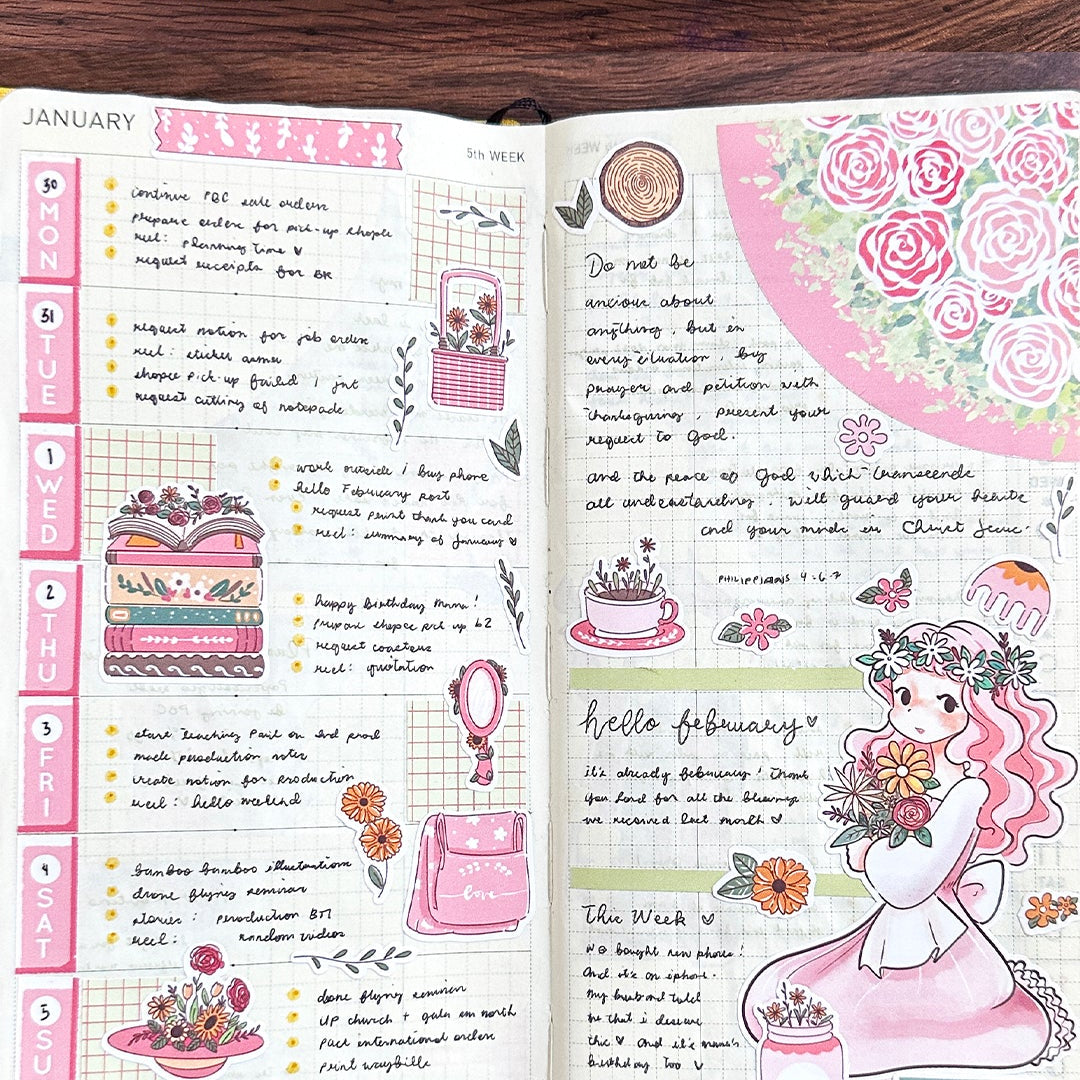 JANUARY
5th WEEK
30
MON
continue PBC sale orders
prepare orders for pick-up shopee
reel: planning time ♡
request receipts for BR
31
TUE
request notion for job orders
reel: sticker
shopee pick-up failed ! jnt
request cutting of notepads
1
WED
work outside / buy phone
hello February post
request print thank you card
reel: summary of January ♡
2
THU
happy birthday Mama!
prepare shopee pick up b2
request coasters
reel: quotation
3
FRI
start teaching Paul on 2nd prod
made production notes
create notion for production
reel: hello weekend
4
SAT
bamboo bamboo illustrations
drone flying seminar
stories: production
reel: random videos
love
5
SU
drone flying seminar
UP church + gala em north
pack international orders
print waybills
Do not be
anxious about
anything, but in
every situation, by
prayer and petition with
thanksgiving, present your
request to God.
and the peace of God which transcends
all understanding, will guard your hearts
and your minds in Christ Jesus.
PHILIPPIANS 4:6-7
hello february ♡
it's already february! Thank
you Lord for all the blessings
we received last month ♡
This Week ♡
we bought new phone!
And it's an iphone.
My husband told
me that i deserve
this ♡ And it's mama's
birthday too ♡